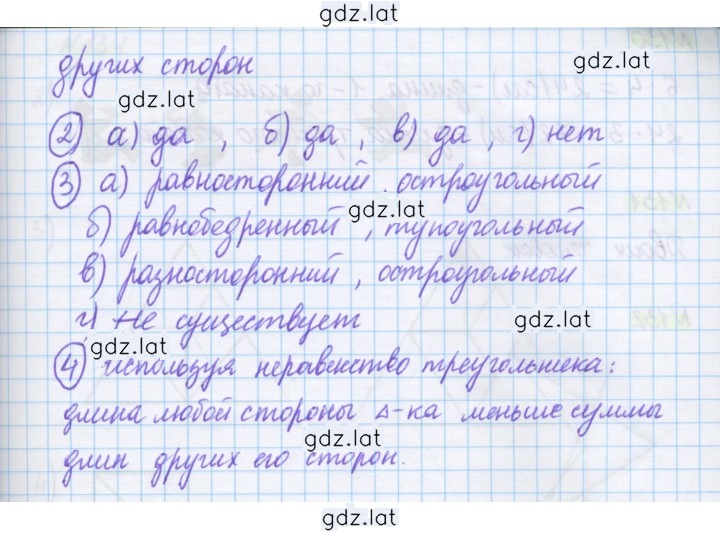 gdz.lat
других сторон
gdz.lat
gdz.lat
2) а) да , б) да , в) да , г) нет
3) а) равносторонний. остроугольный
gdz.lat
б) равнобедренный , тупоугольный
в) разносторонний , остроугольный
г) Не существует
gdz.lat
gdz.lat
4) используя неравенство треугольника:
длина любой стороны Δ-ка меньше суммы
gdz.lat
длин других его сторон.
gdz.lat